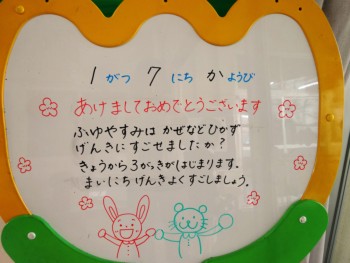 1 がつ 7 にち か ようび
あけましておめでとうございます
ふゆやすみは かぜなどひかず
げんきにすごせましたか?
きょうから3がっきがはじまります.
まいにちげんきよくすごしましょう.